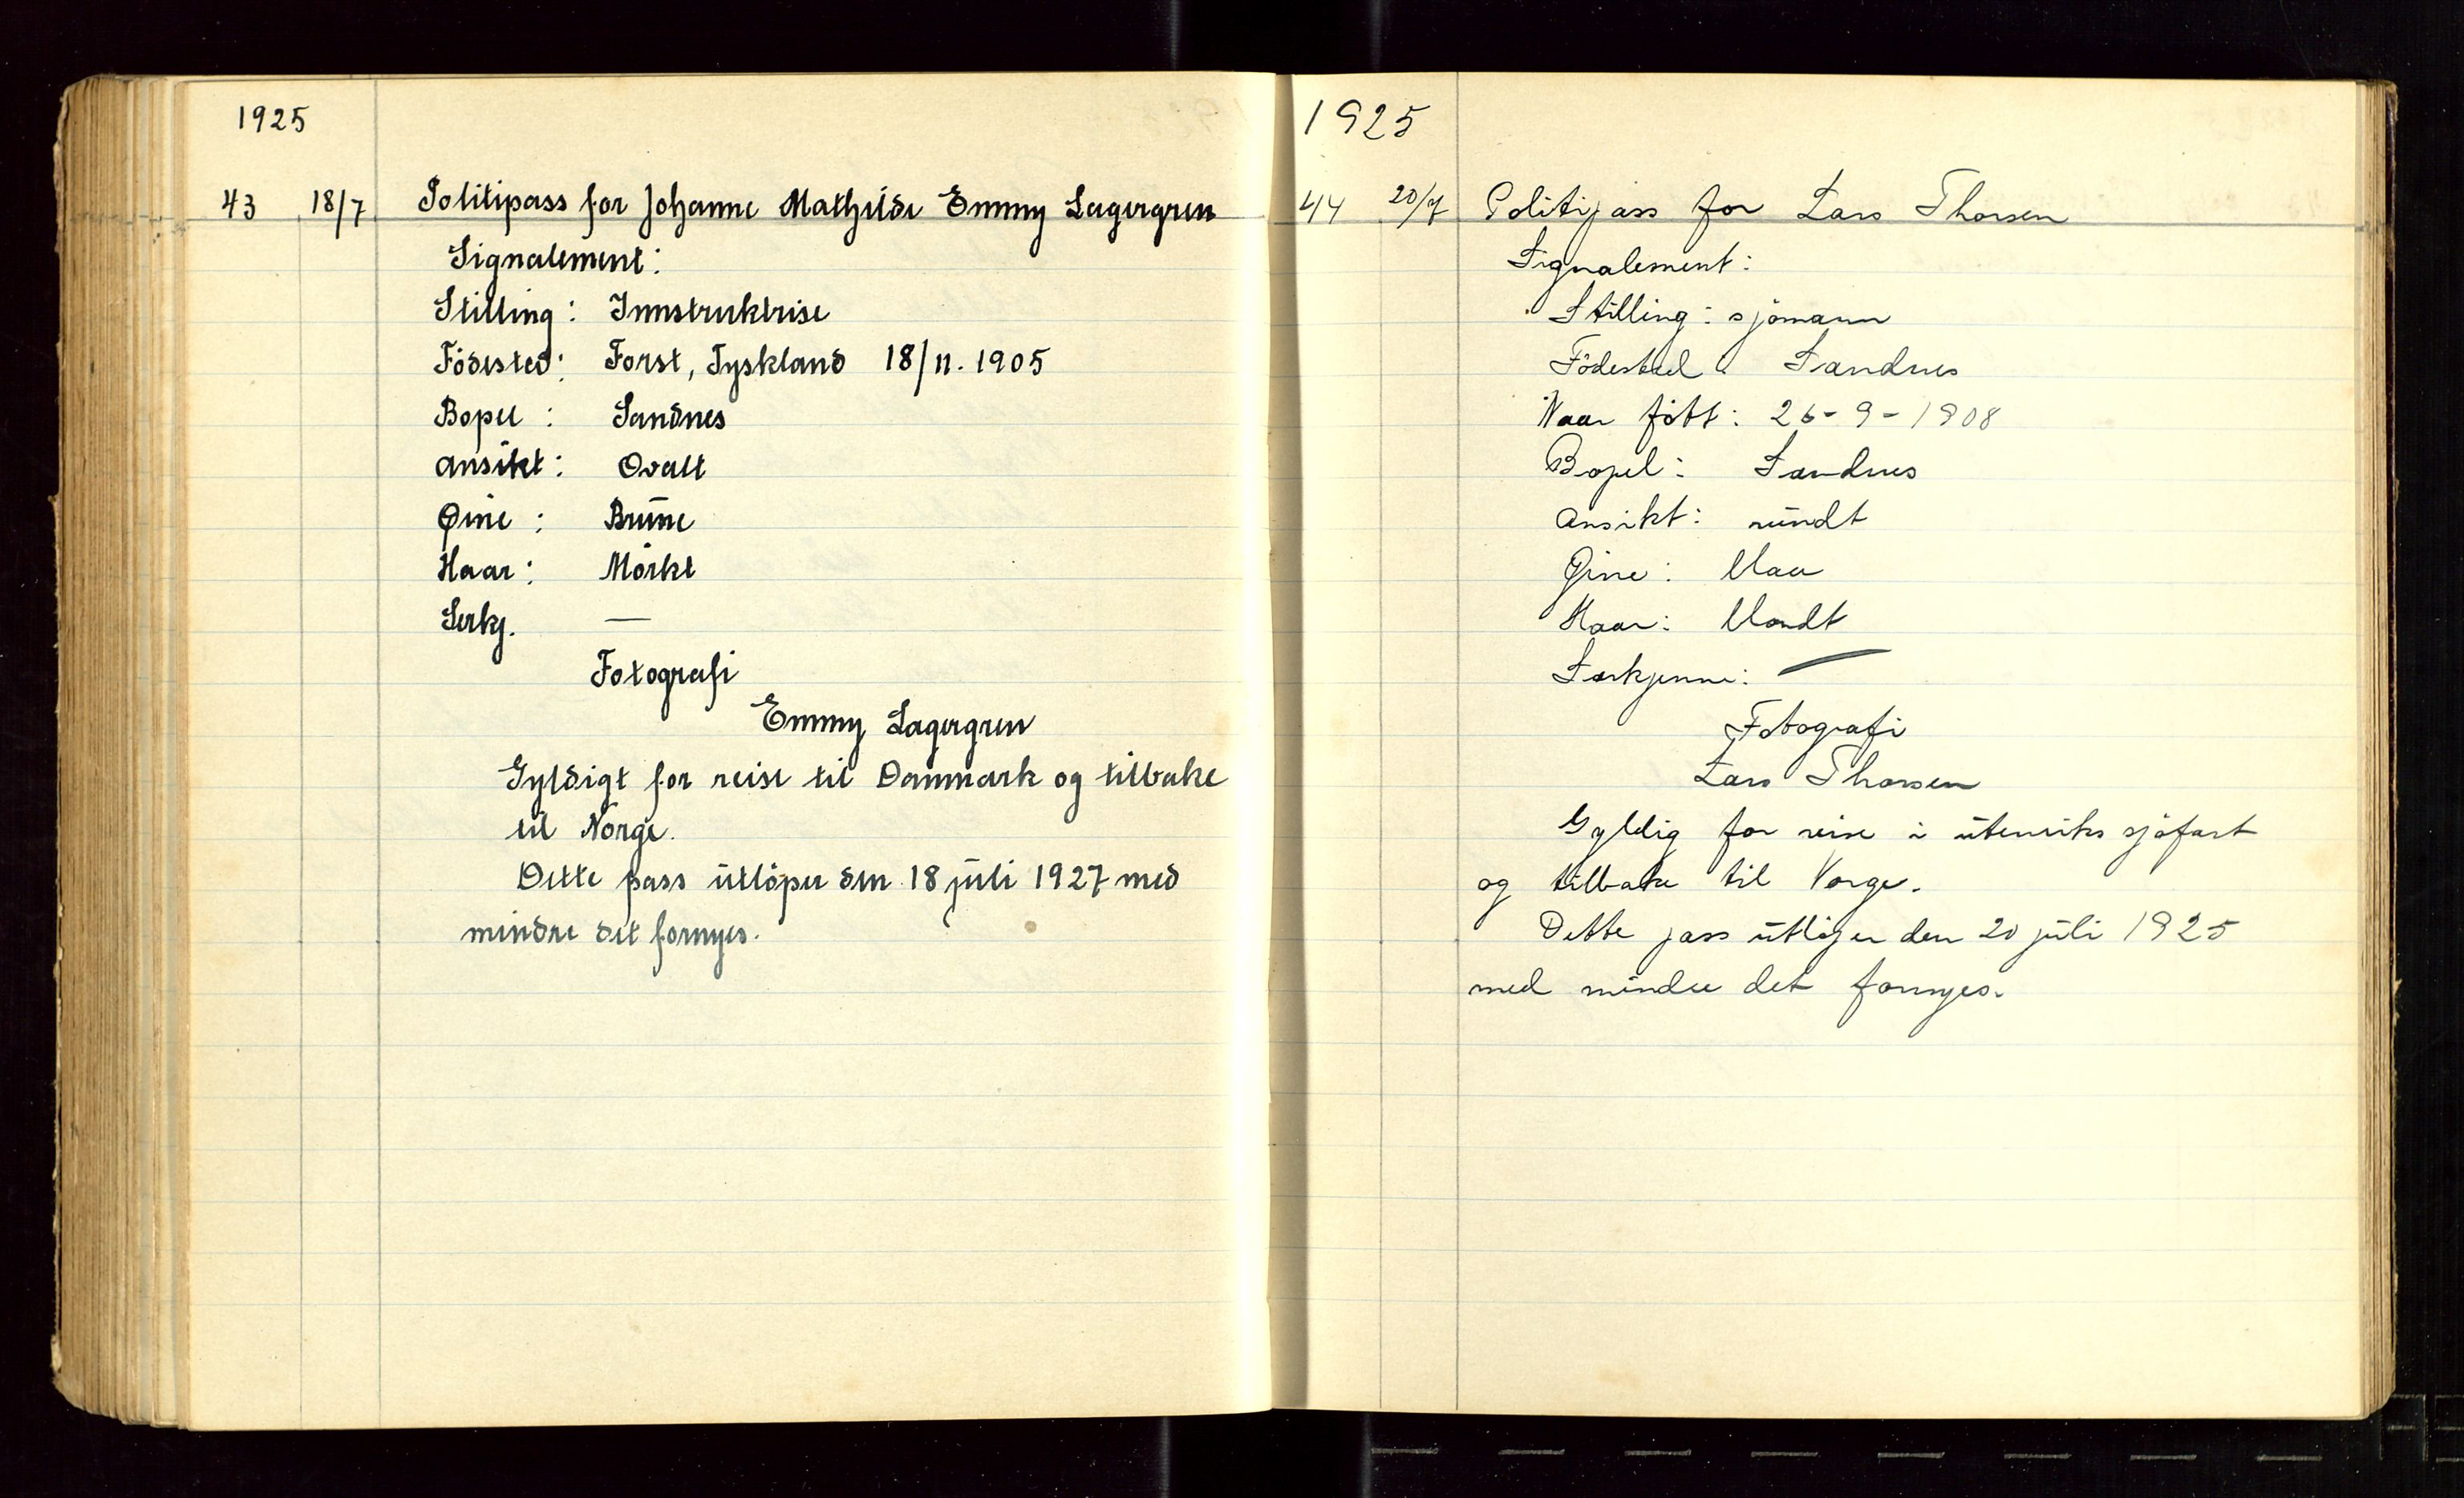 1925
43 18/7 Politipass for Johanne Mathilde Emmy Lagergren
Signalement:
Stilling: Innstruktrise
Födested: Forst, Tyskland 18/11. 1905
Bopel: Sandnes
Ansikt: Ovalt
Øine: Brüne
Haar: Mörkt
Serkj. —
Fotografi
Emmy Lagergren
Gyldigt for reise til Danmark og tilbake
til Norge.
Dette pass ütlöper den 18 jüli 1927 med
mindre det fornyes.
1925
44 20/7 Politipass for Lars Thorsen
Signalement:
Stilling: sjömann
Födested: Sandnes
Naar föTt: 26-9-1908
Bopel: Sandnes
Ansikt: ründt
Øine: blaa
Haar: blondt
Særkjenne: —
Fotografi
Lars Thorsen
Gyldig for reise i ütenriks sjöfart
og tilbake til Norge.
Dette pass ütlöper den 20 jüli 1925
med mindre det fornyes.